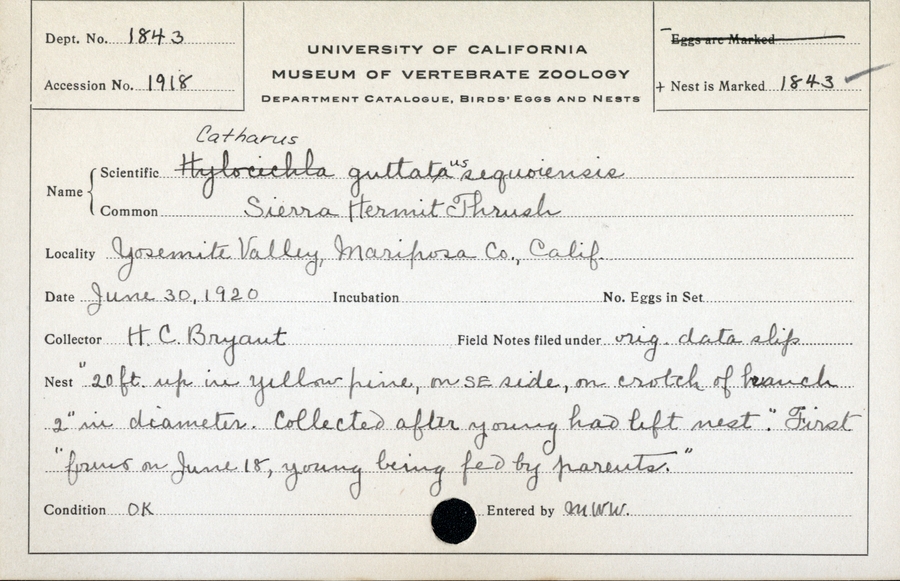 Dept. No. 1843
Accession No. 1918
UNIVERSITY OF CALIFORNIA
MUSEUM OF VERTEBRATE ZOOLOGY
DEPARTMENT CATALOGUE, BIRDS' EGGS AND NESTS
Eggs are Marked
+ Nest is Marked 1843 ✓
Catharus
Name { Scientific Hylocichla guttata us sequoiensis
Common Sierra Hermit Thrush
Locality Yosemite Valley, Mariposa Co., Calif.
Date June 30, 1920 Incubation No. Eggs in Set
Collector H. C. Bryant Field Notes filed under orig. data slip
Nest "20 ft. up in yellow pine, on SE side, on crotch of branch
2" in diameter. Collected after young had left nest." First
"found on June 18, young being fed by parents."
Condition OK Entered by MWW.